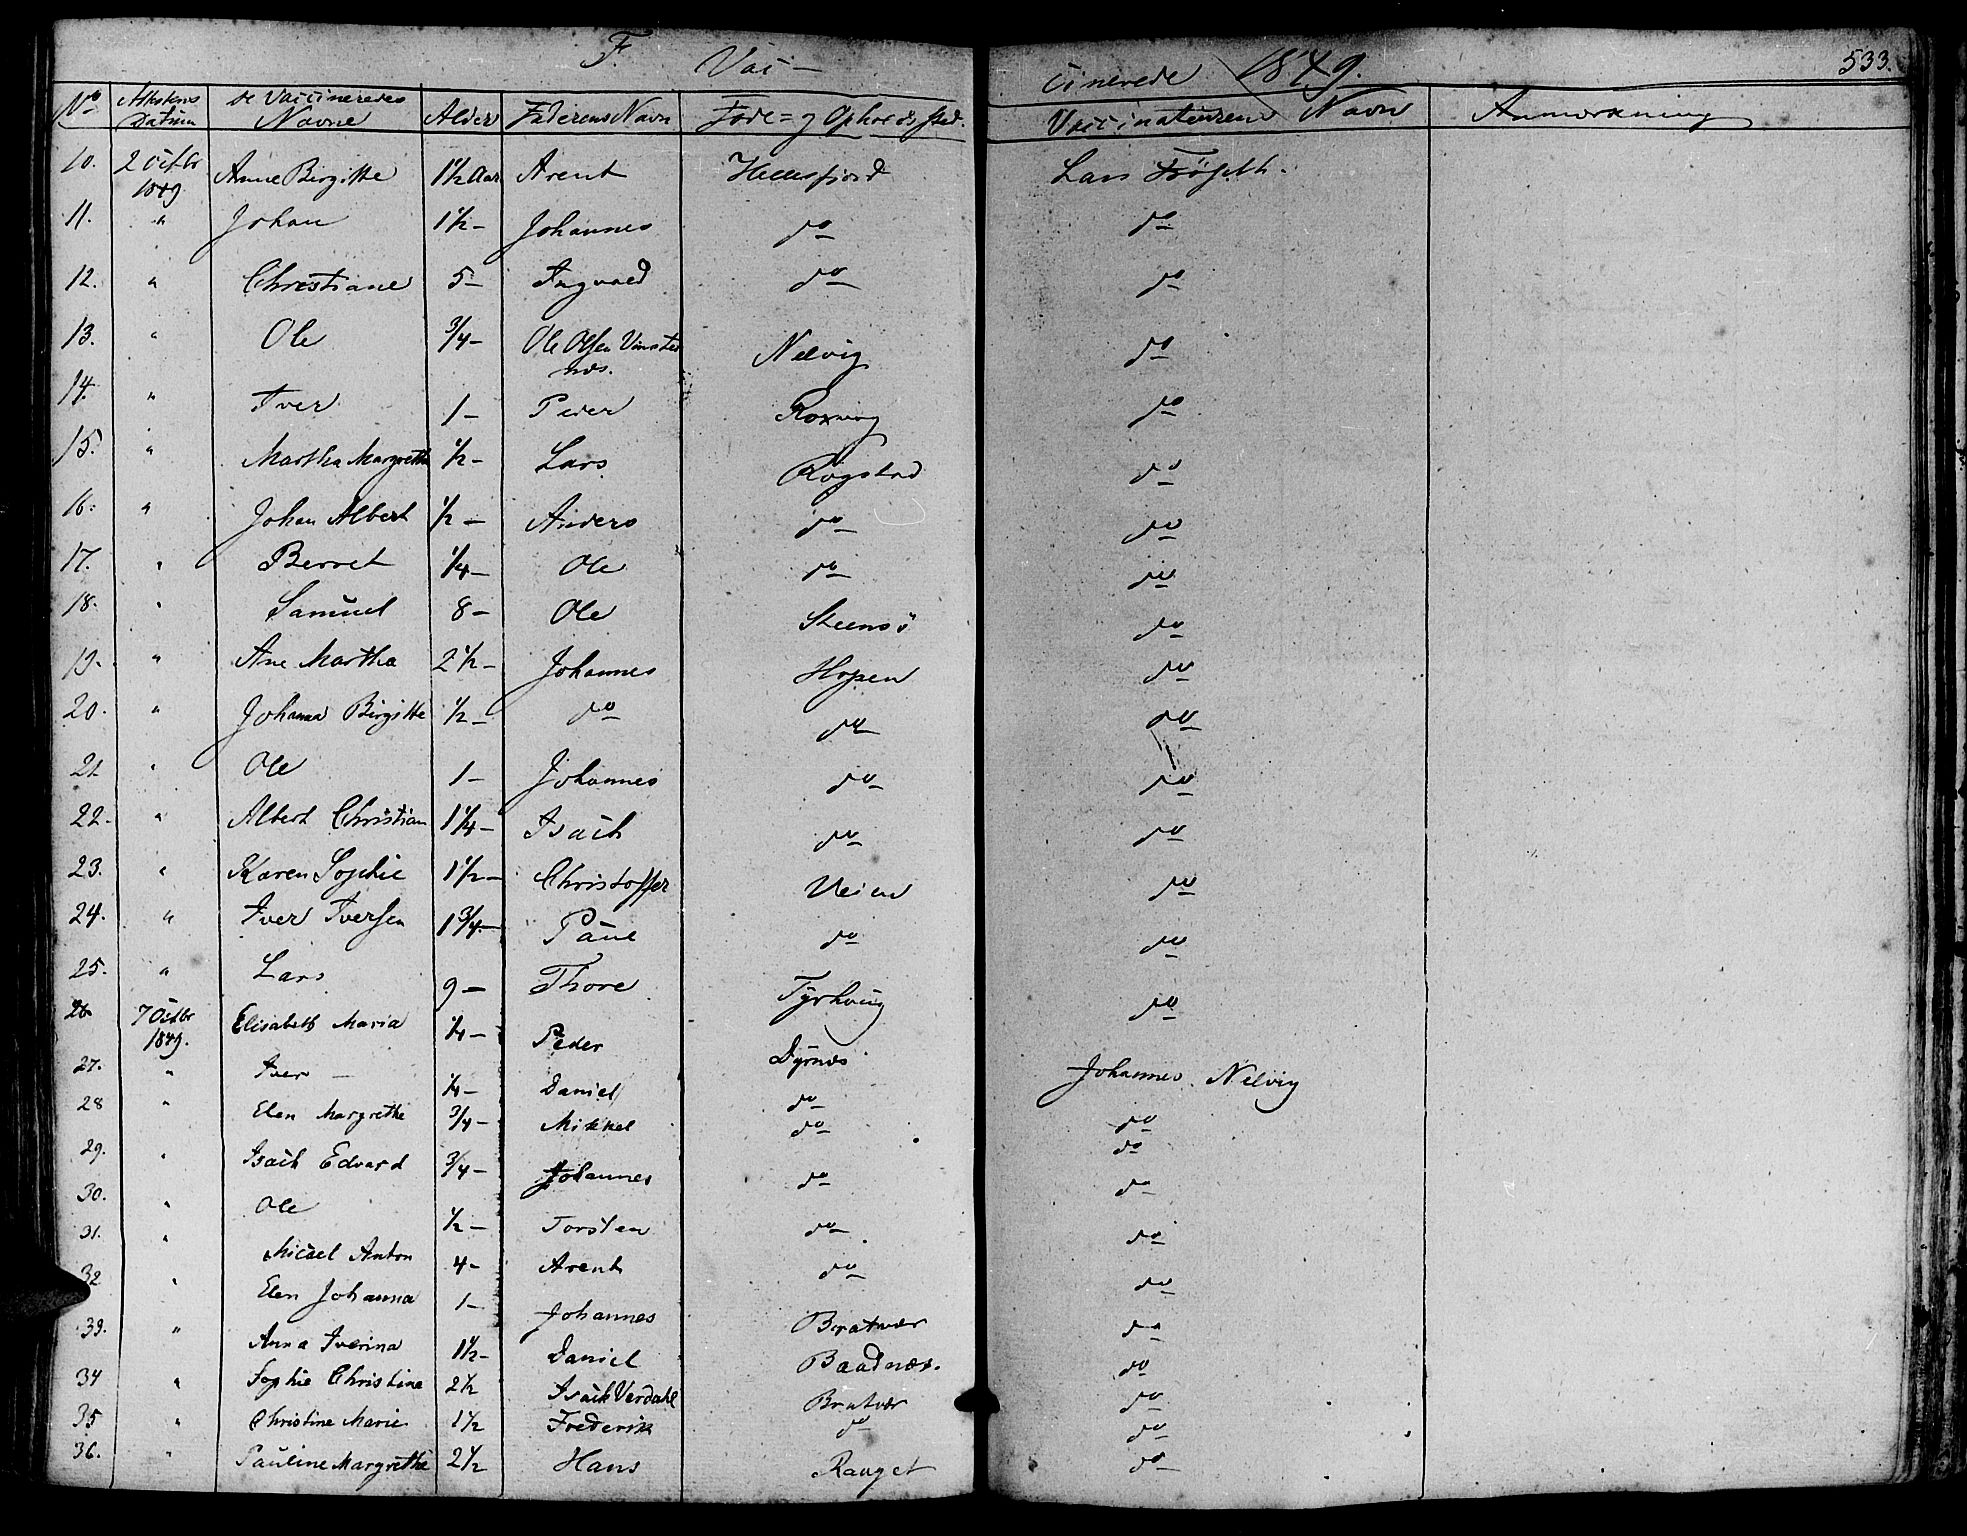 F. Vac- cinerede 1849. 533.
No Attestens Datum De Vaccineredes Navne Alder Faderens Navn Føde= og Opholdssted. Vaccinateurens Navn Anmærkning
10. 2 Octbr 1849 Anne Birgitte 1½ Aar Arent Hellesfjord Lars
11. " Johan 1½ - Johannes do do
12. " Christiane 5 - Ingvald do do
13. " Ole ¾ - Ole Olsen Nelvig do
14. " Iver 1 - Peder Roxvaag do
15. " Martha Margretha ½ - Lars Rogstad do
16. " Johan Albert ½ - Anders do do
17. " Berret ¼ - Ole do do
18. " Samuel 8 - Ole Steensö do
19. " Ane Martha 2½ - Johannes Hopen do
20. " Johanna Birgitte ½ - do do do
21 " Ole 1 - Johannes do do
22. " Albert Christian 1¼ - Isach do do
23. " Karen Sophie 1½ - Christoffer Veien do
24. " Iver Iversen 1¾ - Paul do do
25. " Lars 9 - Thore Tyrhaug do
26 7 Octbr 1849. Elisabeth Maria ¼ - Peder Dyrnæs Johannes Nelvig
27. " Iver - ¼ - Daniel do do
28 " Elen Margrethe ¾ - Mikkel do do
29. " Isach Edvard ¾ - Johannes do do
30. " Ole ½ - Torsten do do
31. " Micael Anton 4 - Arent do do
32 " Elen Johanna 1 - Johannes Bratvær do
33. " Anna Iverina 1½ - Daniel Baadnæs. do
34 " Sophie Christine 2½ Isach Verdahl Bratvær do
35 " Christine Marie 1½ Frederik do do
36. " Pauline Margrethe 2½ Hans Ranget do